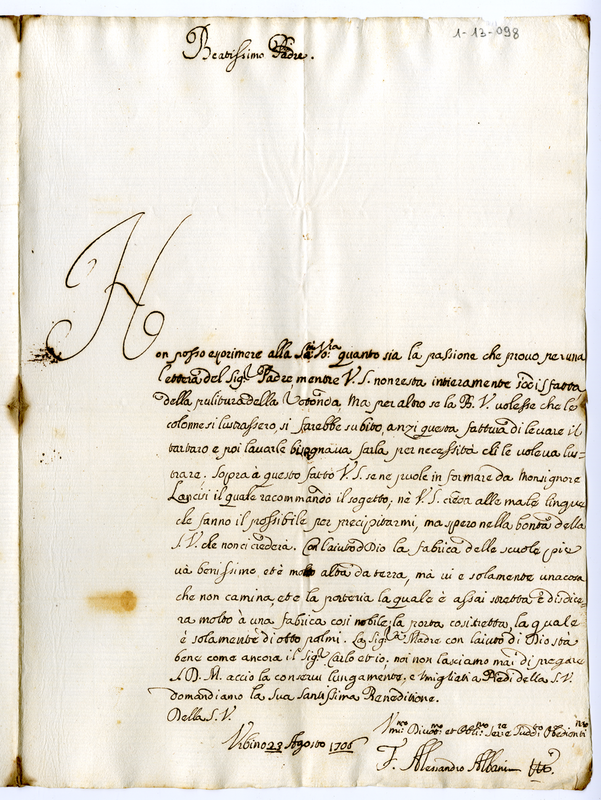 1-13-098
Beatissimo Padre.
Non posso esprimere alla Sa:tà V'ra quanto sia la passione che provo per una
lettera del Sig:r Padre mentre V. S. non resta intieramente sodisfatta
della pulitura della Rotonda, Ma per altro se la B. V. volesse che le
colonne si lustrassero, si farebbe subito, anzi questa fattura di levare il
tartaro e poi lavarle bisognava farla per necessità chi le voleva lu=
trare. Sopra à questo fatto V. S. se ne puole in formare da Monsignore
Lancisi il quale racommandò il sogetto, nè V. S. creda alle male lingue
che fanno il possibile per precipitarmi, ma spero nella bontà della
S. V. che non ci crederà. Con l'aiuto d Dio la fabrica delle scuole pie
và benissimo et è molto alta da terra, mà vi e solamente una cosa
che non camina, et e la porteria la quale è assai stretta e disdice=
ra molto à una fabrica cosi nobile; la porta cosi stretta, la quale
è solamente di otto palmi. La Sig:ra Madre con l'aiuto di Dio stà
bene come ancora il Sig:r Carlo et io, noi non lasciamo mai di pregare
S. D. M. accio la conservi lungamente, e Vmigliati a Piedi della S. V.
domandiamo la Sua Santissima Beneditione.
Della S. V.
Vrbino 28 Agosto 1706
Vmi:mo Divot:mo et Obli:mo Ser:re e Sudd:to Obedienti:mo
F. Alessandro Albani